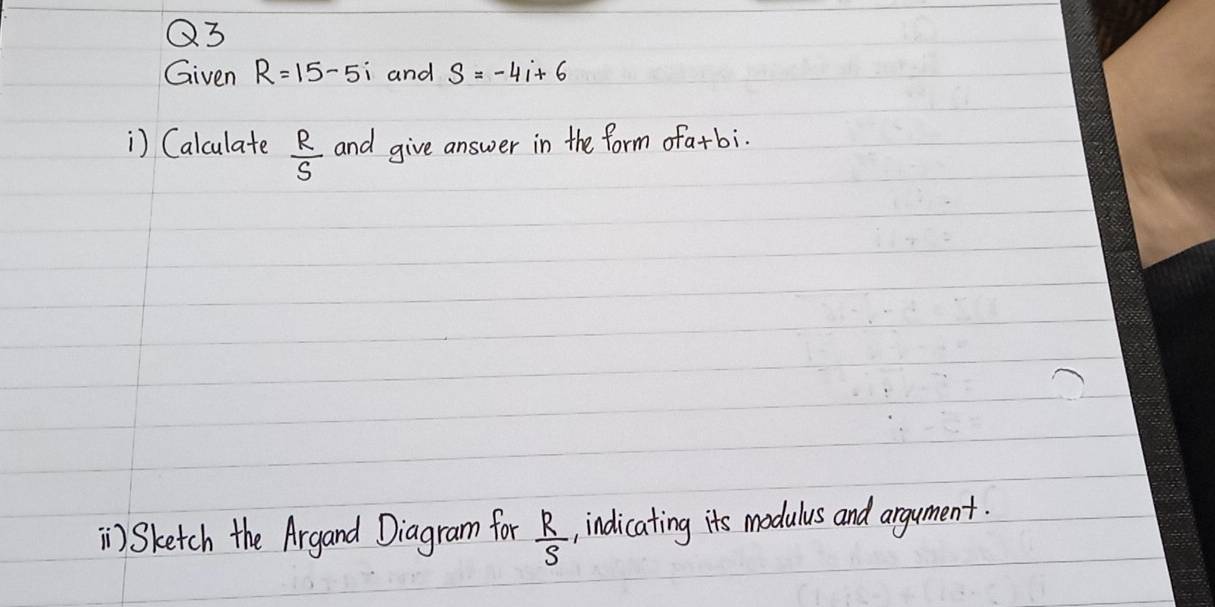 Q3
Given R = 15 - 5i and S = -4i + 6
i) Calculate R/S and give answer in the form of a+bi.
ii) Sketch the Argand Diagram for R/S, indicating its modulus and argument.